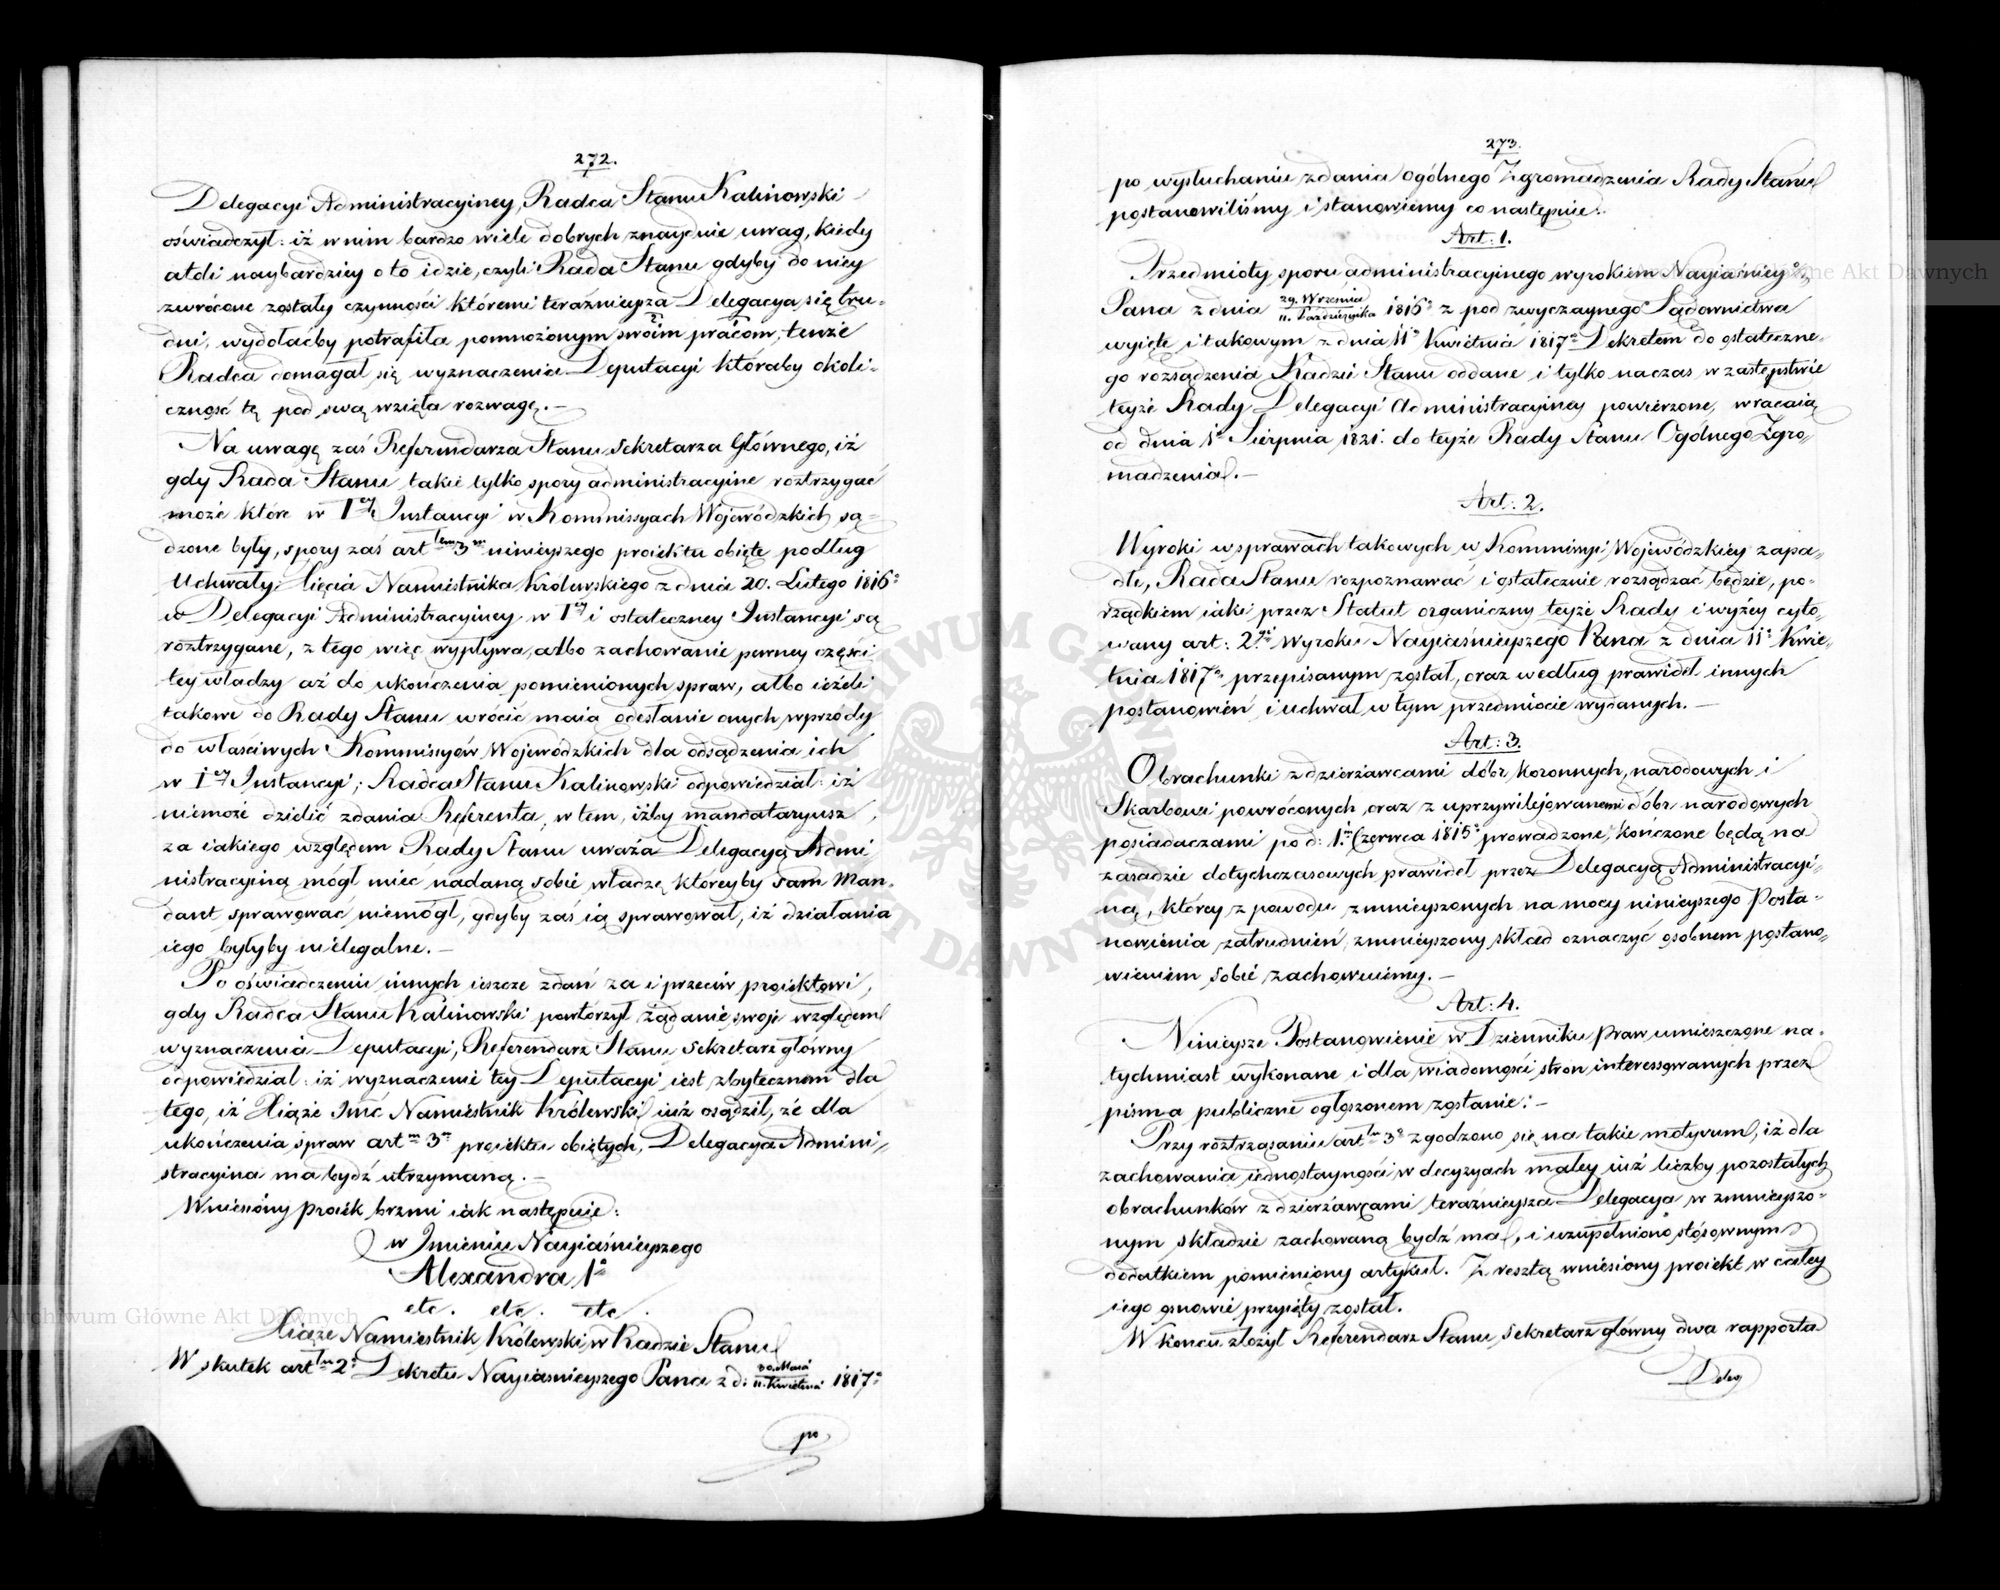 272.
Delegacyi Administracyiney, Radca Stanu Kalinowski
oświadczył: iż w nim bardzo wiele dobrych znayduie uwag, kiedy
atoli naybardziey o to idzie, czyli Rada Stanu gdyby do niey
zwrócone zostały czynności któremi teraźnieysza Delegacya się tru-
dni, wydołaćby potrafiła pomnożonym swoim pracom, tenże
Radca domagał się wyznaczenia Deputacyi któraby okoli-
czność tę pod swą wzięła rozwagę. –
Na uwagę zaś Referendarza Stanu Sekretarza Głównego, iż
gdy Rada Stanu takie tylko spory administracyine roztrzygać
może które w I ey Instancyi w Kommissyach Woiewódzkich są-
dzone były, spory zaś art lem 3 m ninieyszego proiektu obięte podług
Uchwały Xięcia Namiestnika Królewskiego z dnia 20. Lutego 1816 o
w Delegacyi Administracyiney w I ey i ostateczney Instancyi są
roztrzygane, z tego więc wypływa, albo zachowanie pewney części
tey władzy aż do ukończenia pomienionych spraw, albo ieżeli
takowe do Rady Stanu wrócić maią odesłanie onych wprzódy
do właściwych Kommissyów Woiewódzkich dla odsądzenia ich
w I ey Instancyi; Radca Stanu Kalinowski odpowiedział: iż
niemoże dzielić zdania Referenta, w tem, iżby mandataryusz
za iakiego względem Rady Stanu uważa Delegacyą Admi
nistracyiną mógł mieć nadaną sobie władzę któreyby sam Man-
dant sprawować niemógł, gdyby zaś ią sprawował, iż działania
iego byłyby nielegalne. –
Po oświadczeniu innych ieszcze zdań za i przeciw proiektowi,
gdy Radca Stanu Kalinowski powtórzył żądanie swoje względem
wyznaczenia Deputacyi, Referendarz Stanu Sekretarz główny
odpowiedział: iż wyznaczenie tey Deputacyi iest zbytecznem dla
tego, iż Xiąże Jmć Namiestnik Królewski iuż osądził, że dla
ukończenia spraw art m 3 m proiektu obiętych, Delegacya Admini-
stracyina ma bydź utrzymaną. –
Wniesiony proiekt brzmi iak następuie:
w Imieniu Nayiaśnieyszego
Alexandra 1 o
etc. etc. etc.
Xiąże Namiestnik Królewski w Radzie Stanu
W skutek art lu 2 o Dekretu Nayiaśnieyszego Pana z d: 30. Marca / 11. Kwietnia 1817 o
po
273.
po wysłuchaniu zdania ogólnego Zgromadzenia Rady Stanu
postanowiliśmy i stanowiemy co następuie:
Art: 1.
Przedmioty sporu administracyjnego wyrokiem Nayiaśniey:
Pana z dnia 29. Września / 11. Października 1816 o z pod zwyczaynego Sądownictwa
wyięte i takowym z dnia 11 o Kwietnia 1817 o Dekretem do ostateczne-
go rozsądzenia Radzie Stanu oddane i tylko na czas w zastępstwie
teyże Rady Delegacyi Administracyiney powierzone, wracaią
od dnia 1 o Sierpnia 1821. do teyże Rady Stanu Ogólnego Zgro-
madzenia. –
Art: 2.
Wyroki w sprawach takowych w Kommissyi Woiewódzkiey zapa-
dłe, Rada Stanu rozpoznawać i ostatecznie rozsądzać będzie, po-
rządkiem iaki przez Statut organiczny teyże Rady i wyżey cyto-
wany art: 2 gi Wyroku Nayiaśnieyszego Pana z dnia 11 o Kwie-
tnia 1817 o przepisanym został, oraz według prawideł innych
postanowień i uchwał w tym przedmiocie wydanych. –
Art: 3.
Obrachunki z dzierżawcami dóbr koronnych, narodowych i
Skarbowi powróconych, oraz z uprzywilejowanemi dóbr narodowych
posiadaczami po d: 1. Czerwca 1815 o prowadzone, kończone będą na
zasadzie dotychczasowych prawideł przez Delegacyą Administracyi-
ną, którey z powodu zmnieyszonych na mocy ninieyszego Posta-
nowienia zatrudnień, zmnieyszony skład oznaczyć osobnem postano-
wieniem sobie zachowuiemy. –
Art: 4.
Ninieysze Postanowienie w Dzienniku Praw umieszczone na-
tychmiast wykonane i dla wiadomości stron interessowanych przez
pisma publiczne ogłoszonem zostanie: –
Przy roztrząsaniu art lu 3 o zgodzono się na takie motyvum, iż dla
zachowania iednostayności w decyzyach małey iuż liczby pozostałych
obrachunków z dzierżawcami teraźnieysza Delegacya w zmnieyszo-
nym składzie zachowaną bydź ma, i uzupełniono stósownym
dodatkiem pomieniony artykuł. Z resztą wniesiony proiekt w całey
iego osnowie przyięty został.
W końcu złożył Referendarz Stanu Sekretarz główny dwa rapporta
Deleg